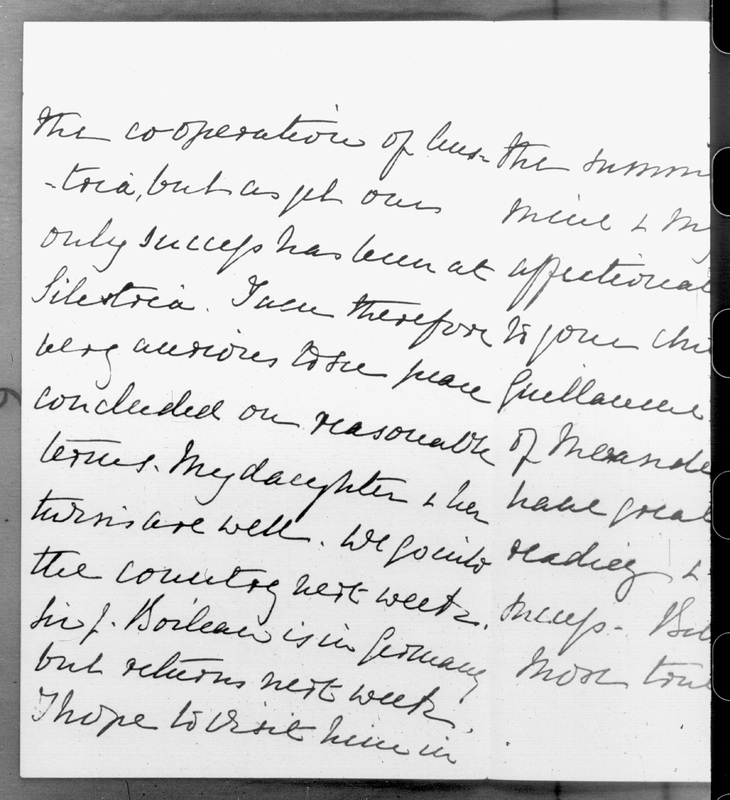 the cooperation of Aus-
-tria, but as yet our
only success has been at
Silistria. I am therefore
very anxious to see peace
concluded on reasonable
terms. My daughter & her
twins are well. We go into
the country next week.
Sir J. Boileau is in Germany
but returns next week.
I hope to visit him in
the summ
mine & My
affectionat
to your chi
Guillaume.
of
have great
reading &
success.
Most tru